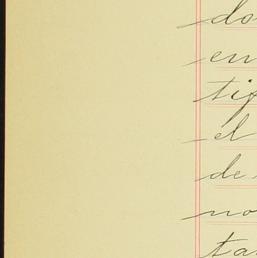 do
en
tif
el
de
no
ta